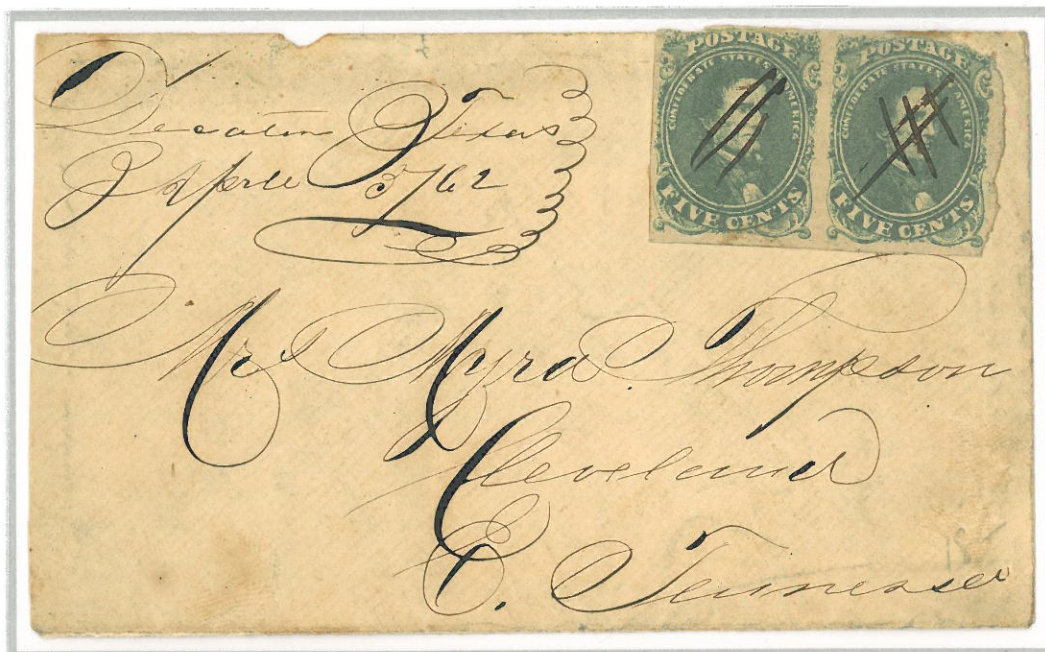 Decatur Texas
Aprile 5/62
POSTAGE
CONFEDERATE STATES AMERICA
FIVE CENTS
POSTAGE
CONFEDERATE STATES AMERICA
FIVE CENTS
Mrs Myra Thompson
Cleveland
E. Tennessee